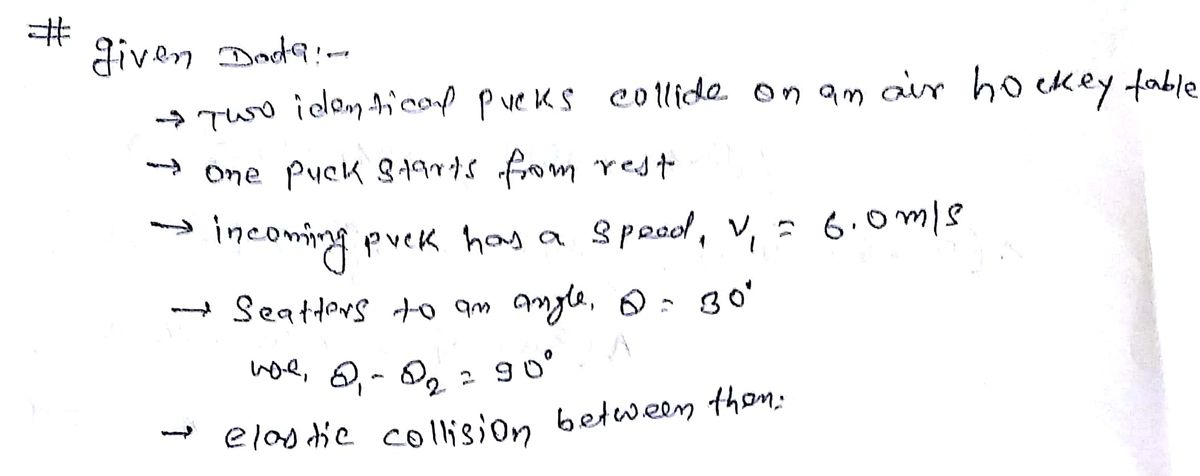 # given Data:-
→ Two identical pucks collide on an air hockey table
→ one puck starts from rest
→ incoming puck has a speed, V₁ = 6.0 m/s
→ Scatters to an angle, θ = 30°
use, θ₁ - θ₂ = 90°
→ elastic collision between them: